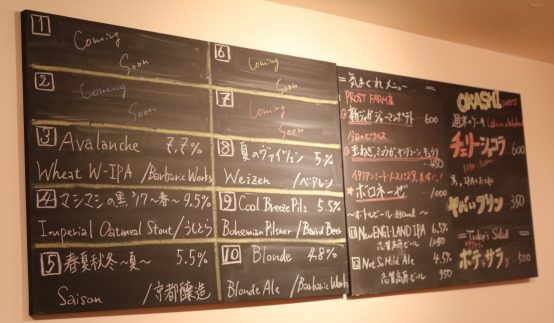 1
Coming
Soon
2
Coming
Soon
3 Avalanche 7.7%
Wheat W-IPA / Barbaric Works
4 マシマシの黒'17 ~春~ 9.5%
Imperial Oatmeal Stout / うしとら
5 春夏秋冬~夏~ 5.5%
Saison / 京都醸造
6
Coming
Soon
7
Coming
Soon
8 夏のヴァイツェン 5%
Weizen / ベアレン
9 Cool Breeze Pils 5.5%
Bohemian Pilsner / Baird Beer
10 Blonde 4.8%
Blonde Ale / Barbaric Works
気まぐれメニュー
PROST FARM産
ジャーマンポテト 600
今日のピクルス
450
ボロネーゼ 1000
11 New ENGLAND IPA 6.5%
志賀高原ビール 1050
12 Not So Mild Ale 4.5%
志賀高原ビール 950
OKASHI
チェリーショコラ 600
ヤバいプリン 350
Today's Salad
ポテサラ 500